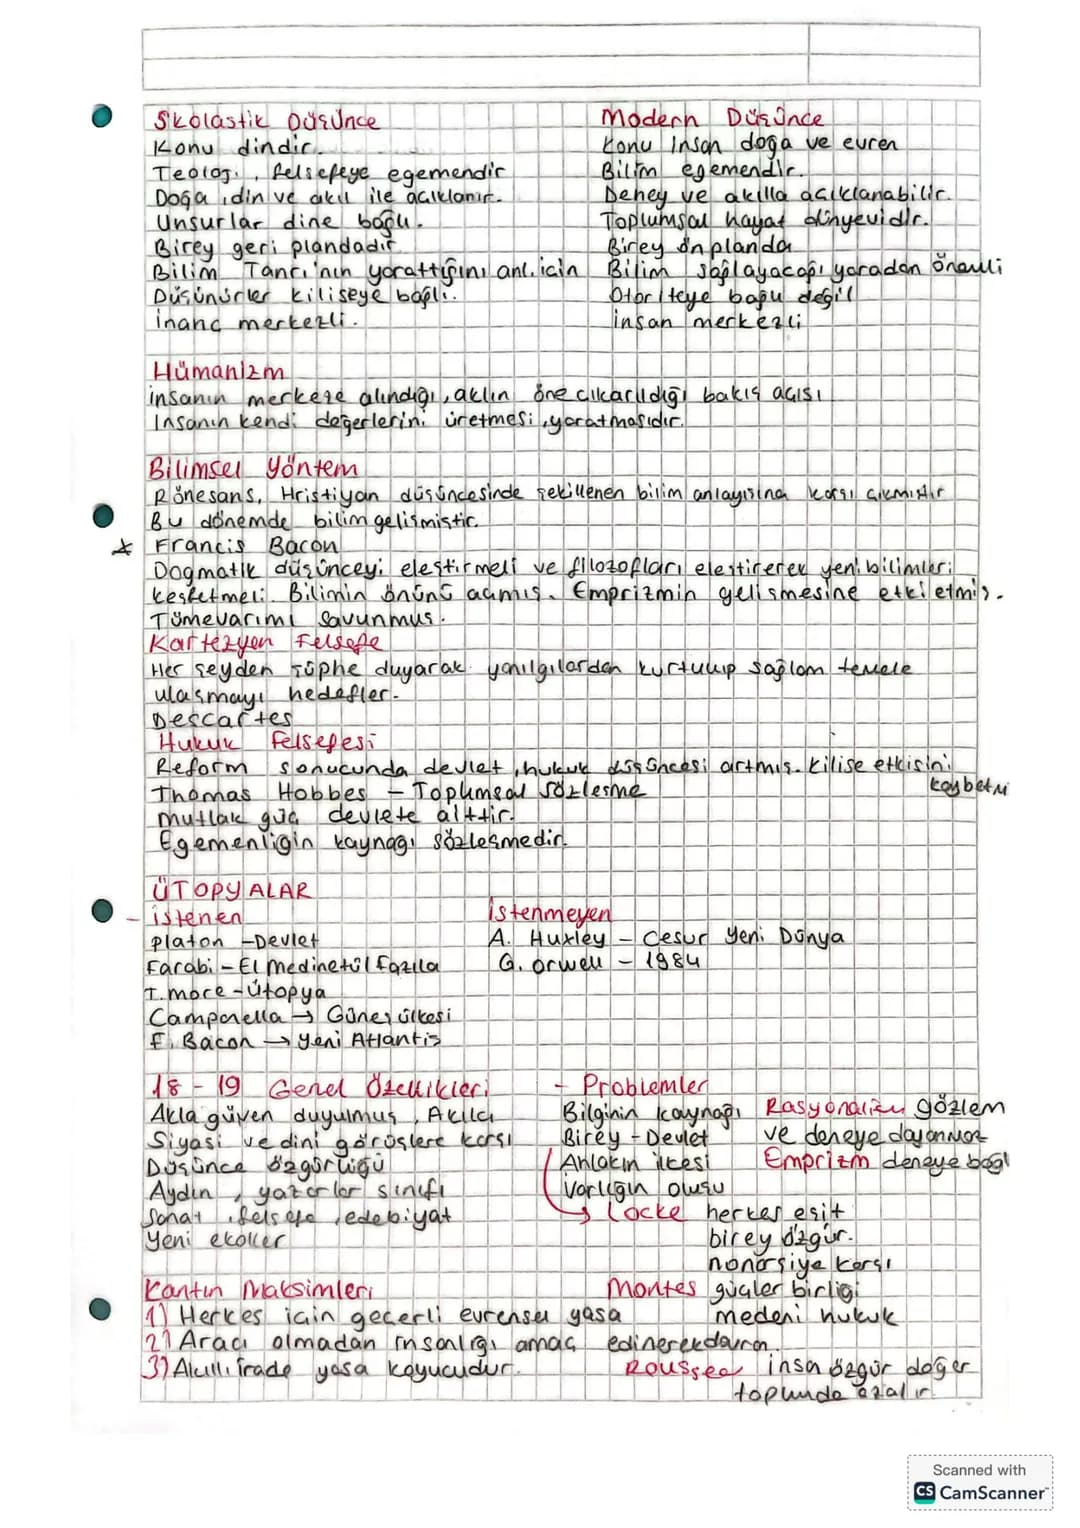 Skolastik Düşünce
Konu dindir.
Teoloji, felsefeye egemendir
Doğa, din ve akıl ile açıklanır.
Unsurlar dine bağlı.
Birey geri plandadır
Bilim Tanrı'nın yarattığını anl. için
Düşünürler kiliseye bağlı.
İnanç merkezli.
Modern Düşünce
Konu İnsan doğa ve evren
Bilim egemendir.
Deney ve akılla açıklanabilir.
Toplumsal hayat dünyevidir.
Birey ön planda
Bilim sağlayacağı yaradan önemli
Otoriteye bağlı değil
insan merkezli
Hümanizm
insanın merkeze alındığı, aklın öne çıkarıldığı bakış açısı
İnsanın kendi değerlerini üretmesi, yaratmasıdır.
Bilimsel Yöntem
Rönesans, Hristiyan düşüncesinde şekillenen bilim anlayışına karşı çıkmıştır
Bu dönemde bilim gelişmiştir.
* Francis Bacon
Dogmatik düşünceyi eleştirmeli ve filozofları eleştirerek yeni bilimleri
keşfetmeli. Bilimin önünü açmış. Emprizmin gelişmesine etki etmiş.
Tümevarımı savunmuş.
Kartezyen Felsefe
Her şeyden şüphe duyarak yanılgılardan kurtulup sağlam temele
ulaşmayı hedefler.
Descartes
Hukuk Felsefesi
Reform sonucunda devlet, hukuk düşüncesi artmış. Kilise etkisini
kaybetmi
Thomas Hobbes - Toplumsal Sözleşme
Mutlak güç devlete aittir.
Egemenliğin kaynağı sözleşmedir.
ÜTOPYALAR
- istenen
Platon - Devlet
Farabi - El Medinetül Fazıla
T. more - Ütopya
Campanella → Güneş ülkesi
F. Bacon → Yeni Atlantis
İstenmeyen
A. Huxley - Cesur Yeni Dünya
G. Orwell - 1984
18 - 19 Genel Özellikleri
Akla güven duyulmuş, Akılcı
Siyasi ve dini görüşlere karşı
Düşünce özgürlüğü
Aydın, yazarlar sınıfı
Sanat, felsefe, edebiyat
Yeni ekoller
- Problemler
Bilginin kaynağı
Birey - Devlet
Ahlakın ilkesi
Varlığın oluşu
Rasyonalizm gözlem
ve deneye dayanmaz
Emprizm deneye bağl
→ Locke herkes eşit
birey özgür.
monarşiye karşı
Montes güçler birliği
medeni hukuk
Kantın Maksimleri
1) Herkes için geçerli evrensel yasa
2) Aracı olmadan insanlığı amaç edinerek davran
3) Akıllı irade yasa koyucudur.
Roussea insan özgür doğar
toplumda azalır
Scanned with
CS CamScanner